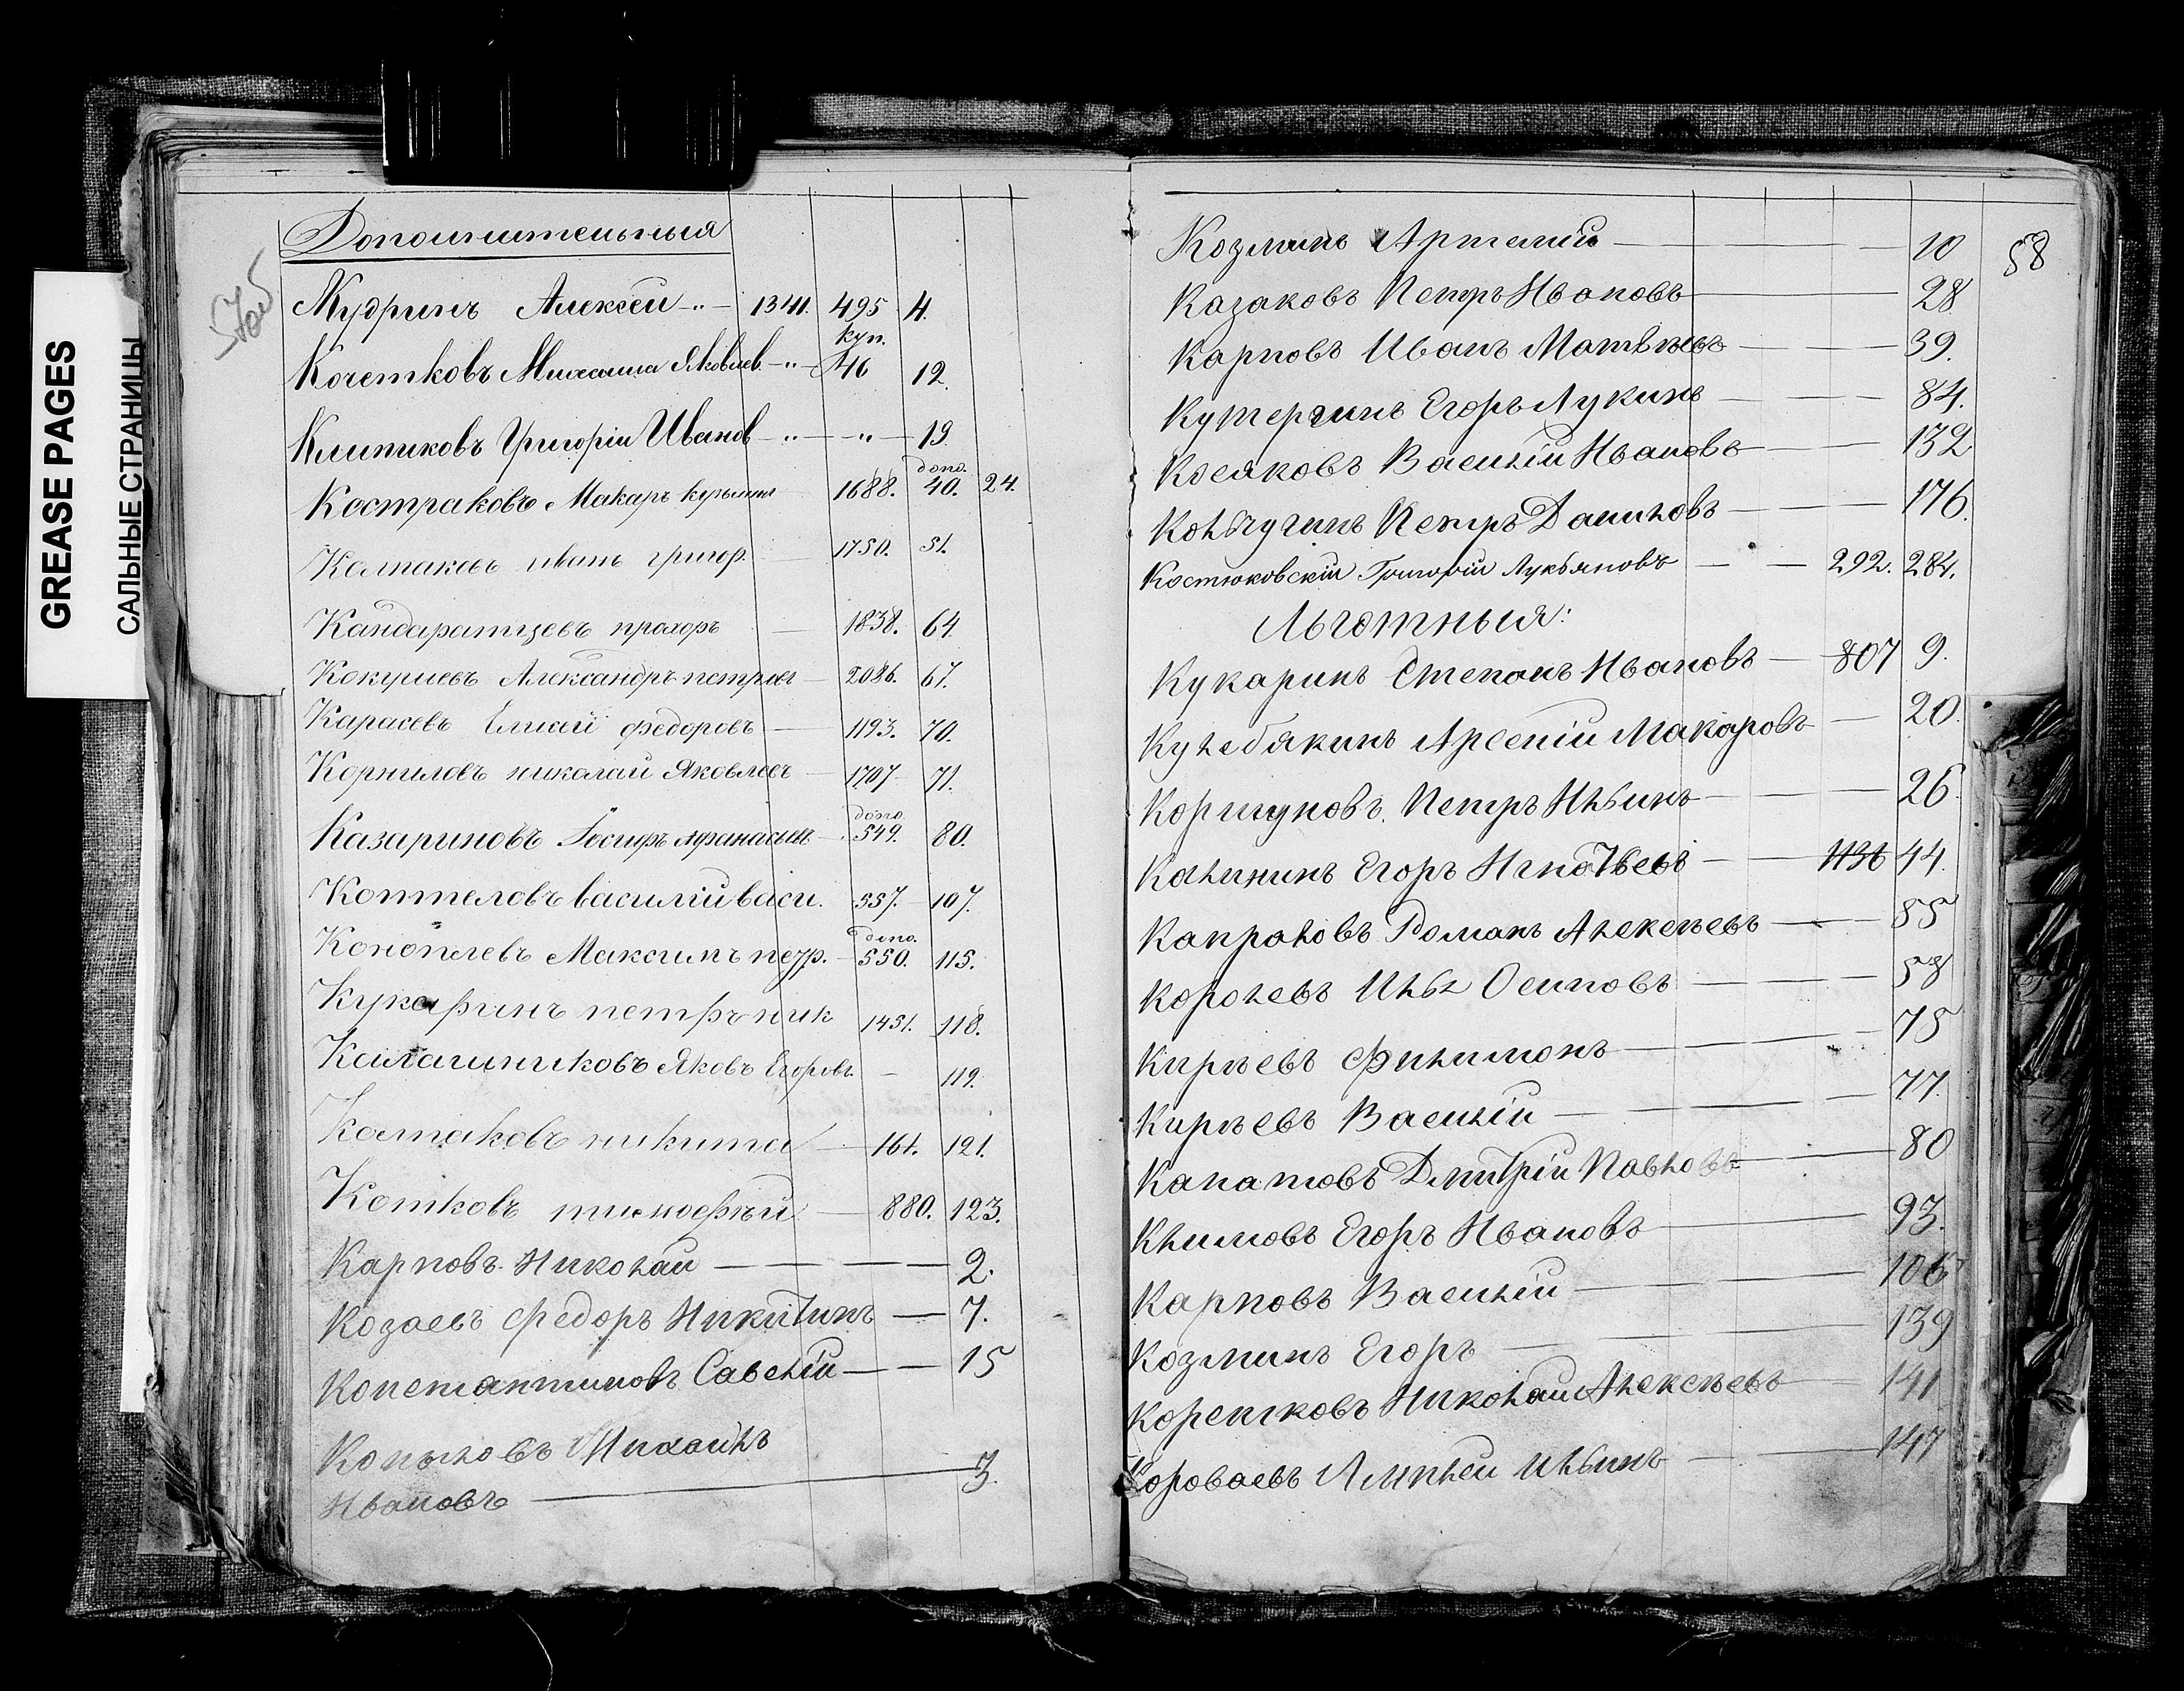 GREASE PAGES
САЛЬНЫЕ СТРАНИЦЫ
57об
Дополнительныя
Кудринъ Алексей 1341. 495 4.
куп.
Кочетковъ Михаила Яковлев. 46 12.
Клитиковъ Григоріи Иванов 19.
допо.
Костраковъ Макаръ Кузьмин 1688. 40. 24.
Колпаковъ иванъ григор. 1750. 51.
Кандаратцевъ прохоръ 1838. 64.
Кокушевъ Александръ петровъ 2086. 67.
Карасевъ Елисей федоровъ 1193. 70.
Корниловъ николай Яковлевъ 1707 71.
допо.
Казариновъ Іосифъ Афанасьев 549. 80.
Коптеловъ василий васи. 557. 107.
допо.
Коноплевъ Максимъ петр. 550. 115.
Кукаринъ петръ ник 1451. 118.
Калашниковъ Яковъ Егоровъ 119.
Колпаковъ никита 161. 121.
Котковъ тимофѣй 880. 123.
Карповъ Николаи 2.
Козаевъ Федоръ Никитинъ 7.
Константиновъ Савелій 15
Копыловъ Михаилъ
Ивановъ 3.
58
Козминъ Артемій 10
Казаковъ Петръ Ивановъ 28
Карповъ Иванъ Матвѣевъ 39.
Кутергинъ Егоръ Лукинъ 84.
Косяковъ Василіи Ивановъ 132
Кольчугинъ Петръ Даниловъ 176.
Костюковскіи Григоріи Лукьяновъ 292. 284.
Льготныя:
Кукаринъ Степанъ Ивановъ 807 9.
Кулебякинъ Арсеніи Макаровъ 20.
Коршуновъ Петръ Ильинъ 26.
Калининъ Егоръ Игнатьевъ 1136 44.
Капраловъ Романъ Алексѣевъ 55
Королевъ Илья Осиповъ 58
Кирѣевъ Филимонъ 75
Кирѣевъ Василіи 77.
Канатовъ Дмитріи Павловъ 80
Климовъ Егоръ Ивановъ 93.
Карповъ Василіи 106
Козминъ Егоръ 139
Корешковъ Николаи Алексѣевъ 141
Короваевъ Ильинъ 147